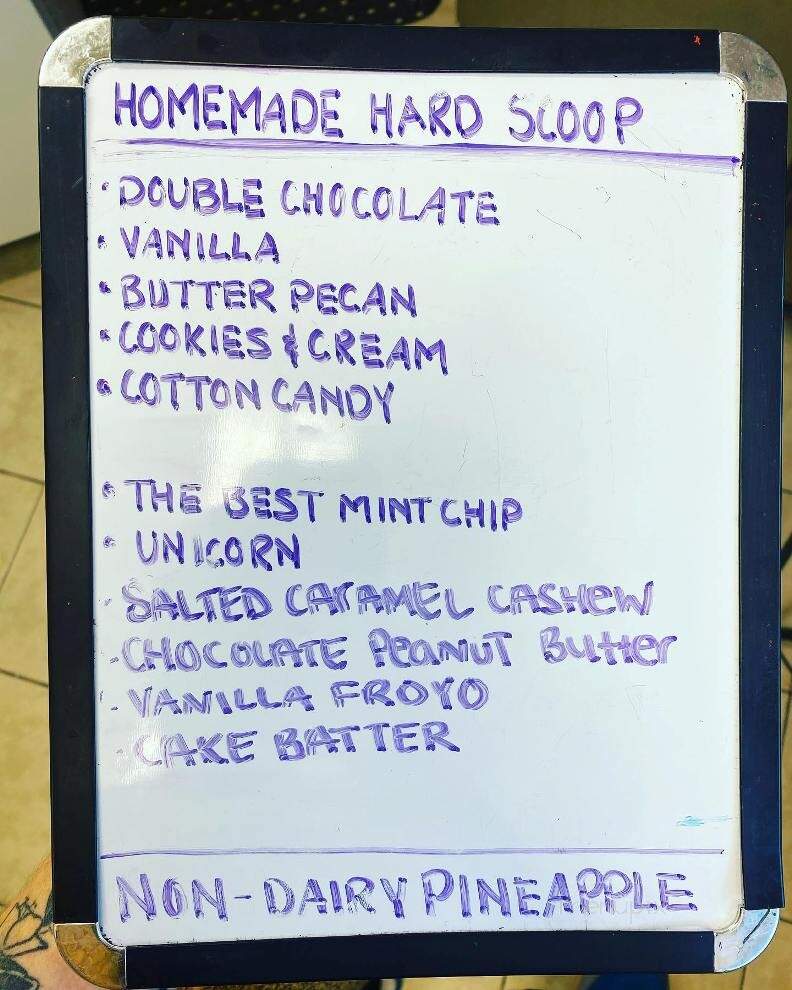 HOMEMADE HARD SCOOP
• DOUBLE CHOCOLATE
• VANILLA
• BUTTER PECAN
• COOKIES & CREAM
• COTTON CANDY
• THE BEST MINT CHIP
• UNICORN
· SALTED CArAMEL CASHeW
- CHOCOLATE PeaNuT Butter
- VANILLA FROYO
- CAKE BATTER
NON-DAIRY PINEAPPLE